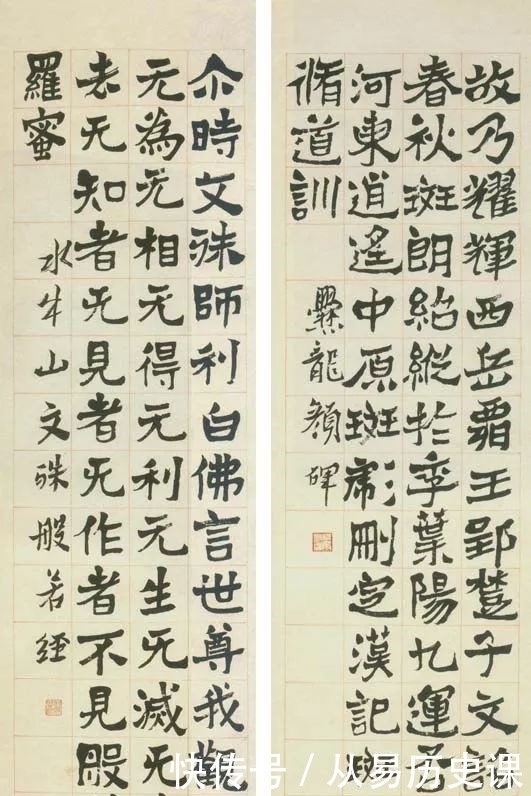 故乃耀輝西岳霸王郢楚子文
春秋斑朗紹縱於季葉陽九運
河東逍遙中原斑彪刪定漢記
脩道訓
爨龍顏碑
尒時文洙師利白佛言世尊我觀
无為无相无得无利无生无滅无
去无知者无見者无作者不見般
羅蜜
水牛山文殊般若經
快传号 / 从易历史课